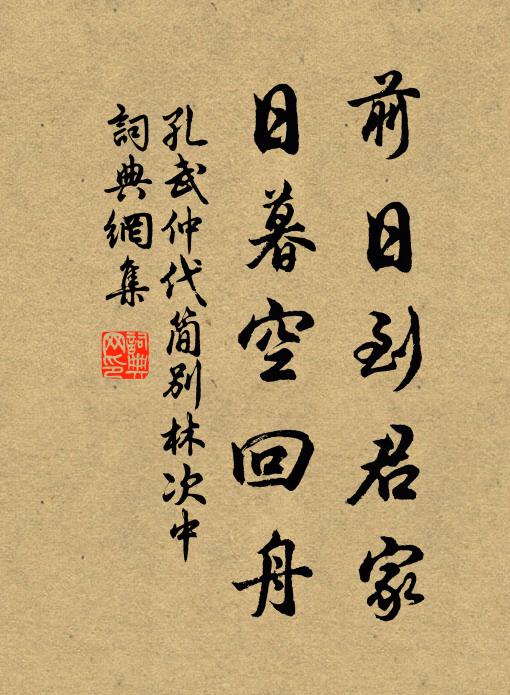 前日到君家
日暮空回舟
孔武仲代簡別林次中
詞典網集
詞典
网印